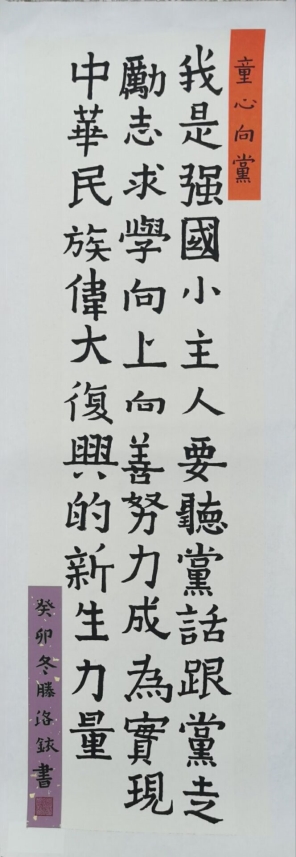 童心向黨
我是强國小主人要聽黨話跟黨走
勵志求學向上向善努力成為實現
中華民族偉大復興的新生力量
癸卯冬滕洛銥書